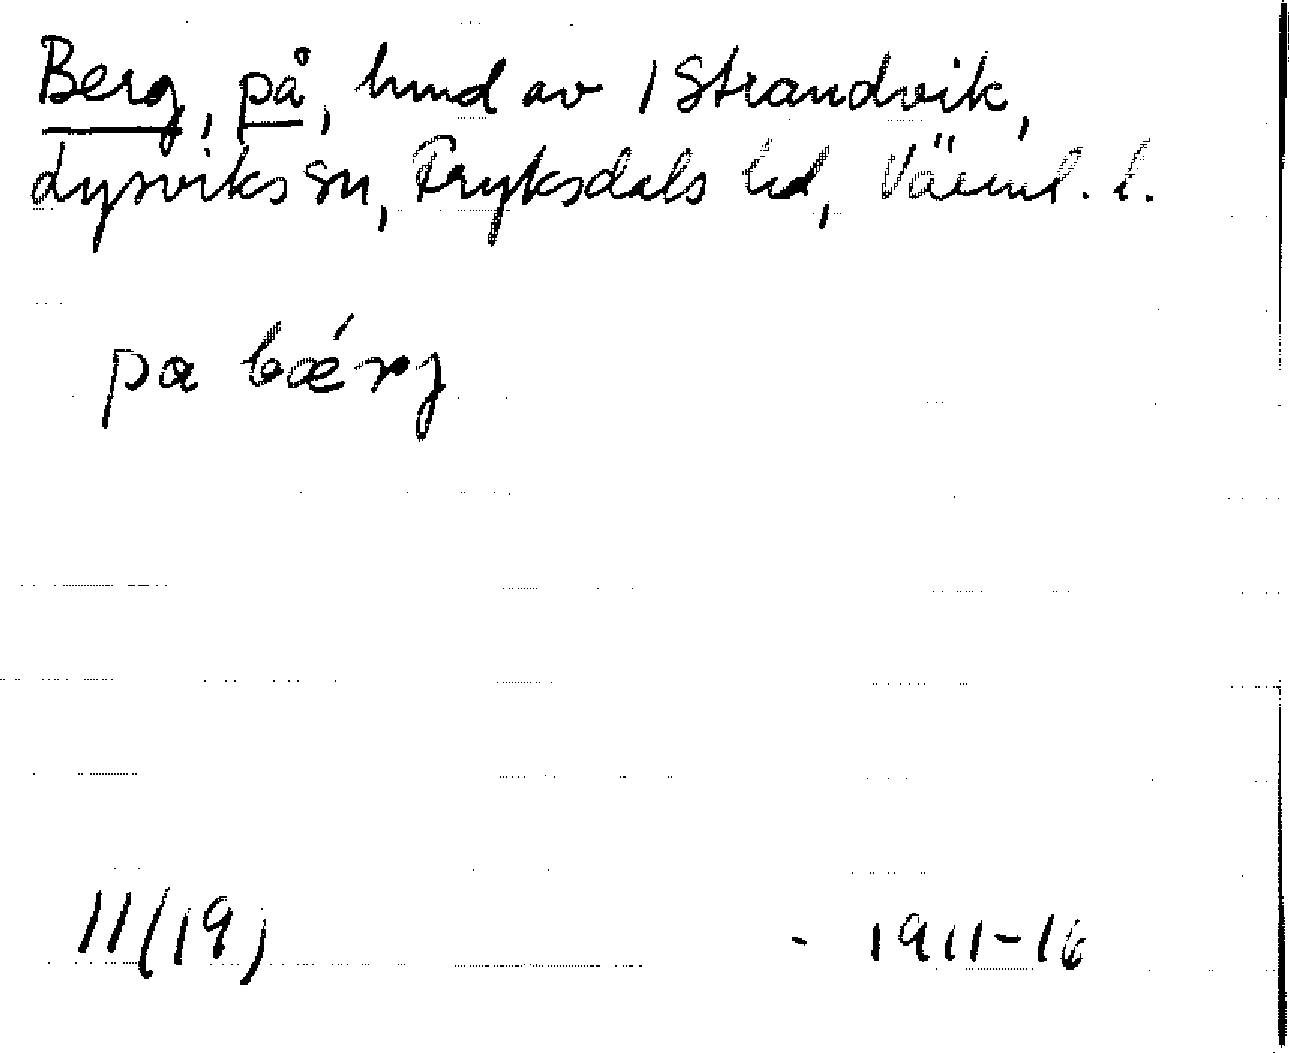 Berg, på, hmd av 1 Strandvik,
Lysviks sn, Fryksdals hd, Värml. l.
pa bæ´rg
11(19) - 1911-16